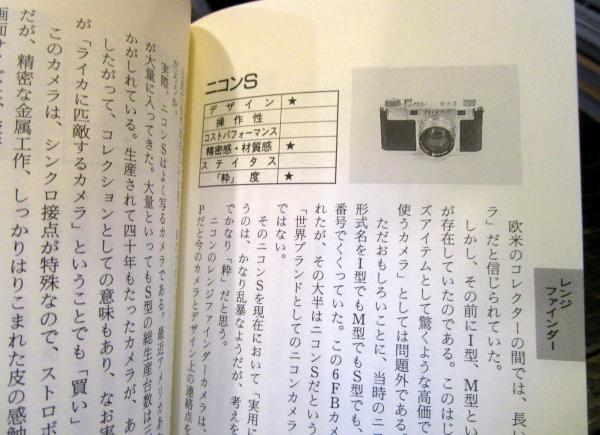 レンジファインダー
ニコンS
デザイン ★
操作性
コストパフォーマンス
精密感・材質感 ★
ステイタス
「粋」度 ★
欧米のコレクターの間では、長
ラ」だと信じられていた。
しかし、その前にI型、M型とい
が存在していたのである。このはじ
ズアイテムとして驚くような高価で
使うカメラ」としては問題外である
ただおもしろいことに、当時のニ
形式名をI型でもM型でもS型でも、
番号でくくっていた。この6FBカメ
れたが、その大半はニコンSだという
「世界ブランドとしてのニコンカメラ
ではない。
そのニコンSを現在において「実用に
うのは、かなり乱暴なようだが、考えを
でかなり「粋」だと思う。
ニコンのレンジファインダーカメラは、
Pだと今のカメラとデザイン上の連絡点を
実際、ニコンSはよく写るカメラである。最近アメリカあ
が大量に入ってきた。大量といってもS型の総生産台数は三
かがしれている。生産されて四十年もたったカメラが、あ
したがって、コレクションとしての意味もあり、なお実
が「ライカに匹敵するカメラ」ということでも「買い」
このカメラは、シンクロ接点が特殊なので、ストロボ
だが、精密な金属工作、しっかりはりこまれた皮の感触